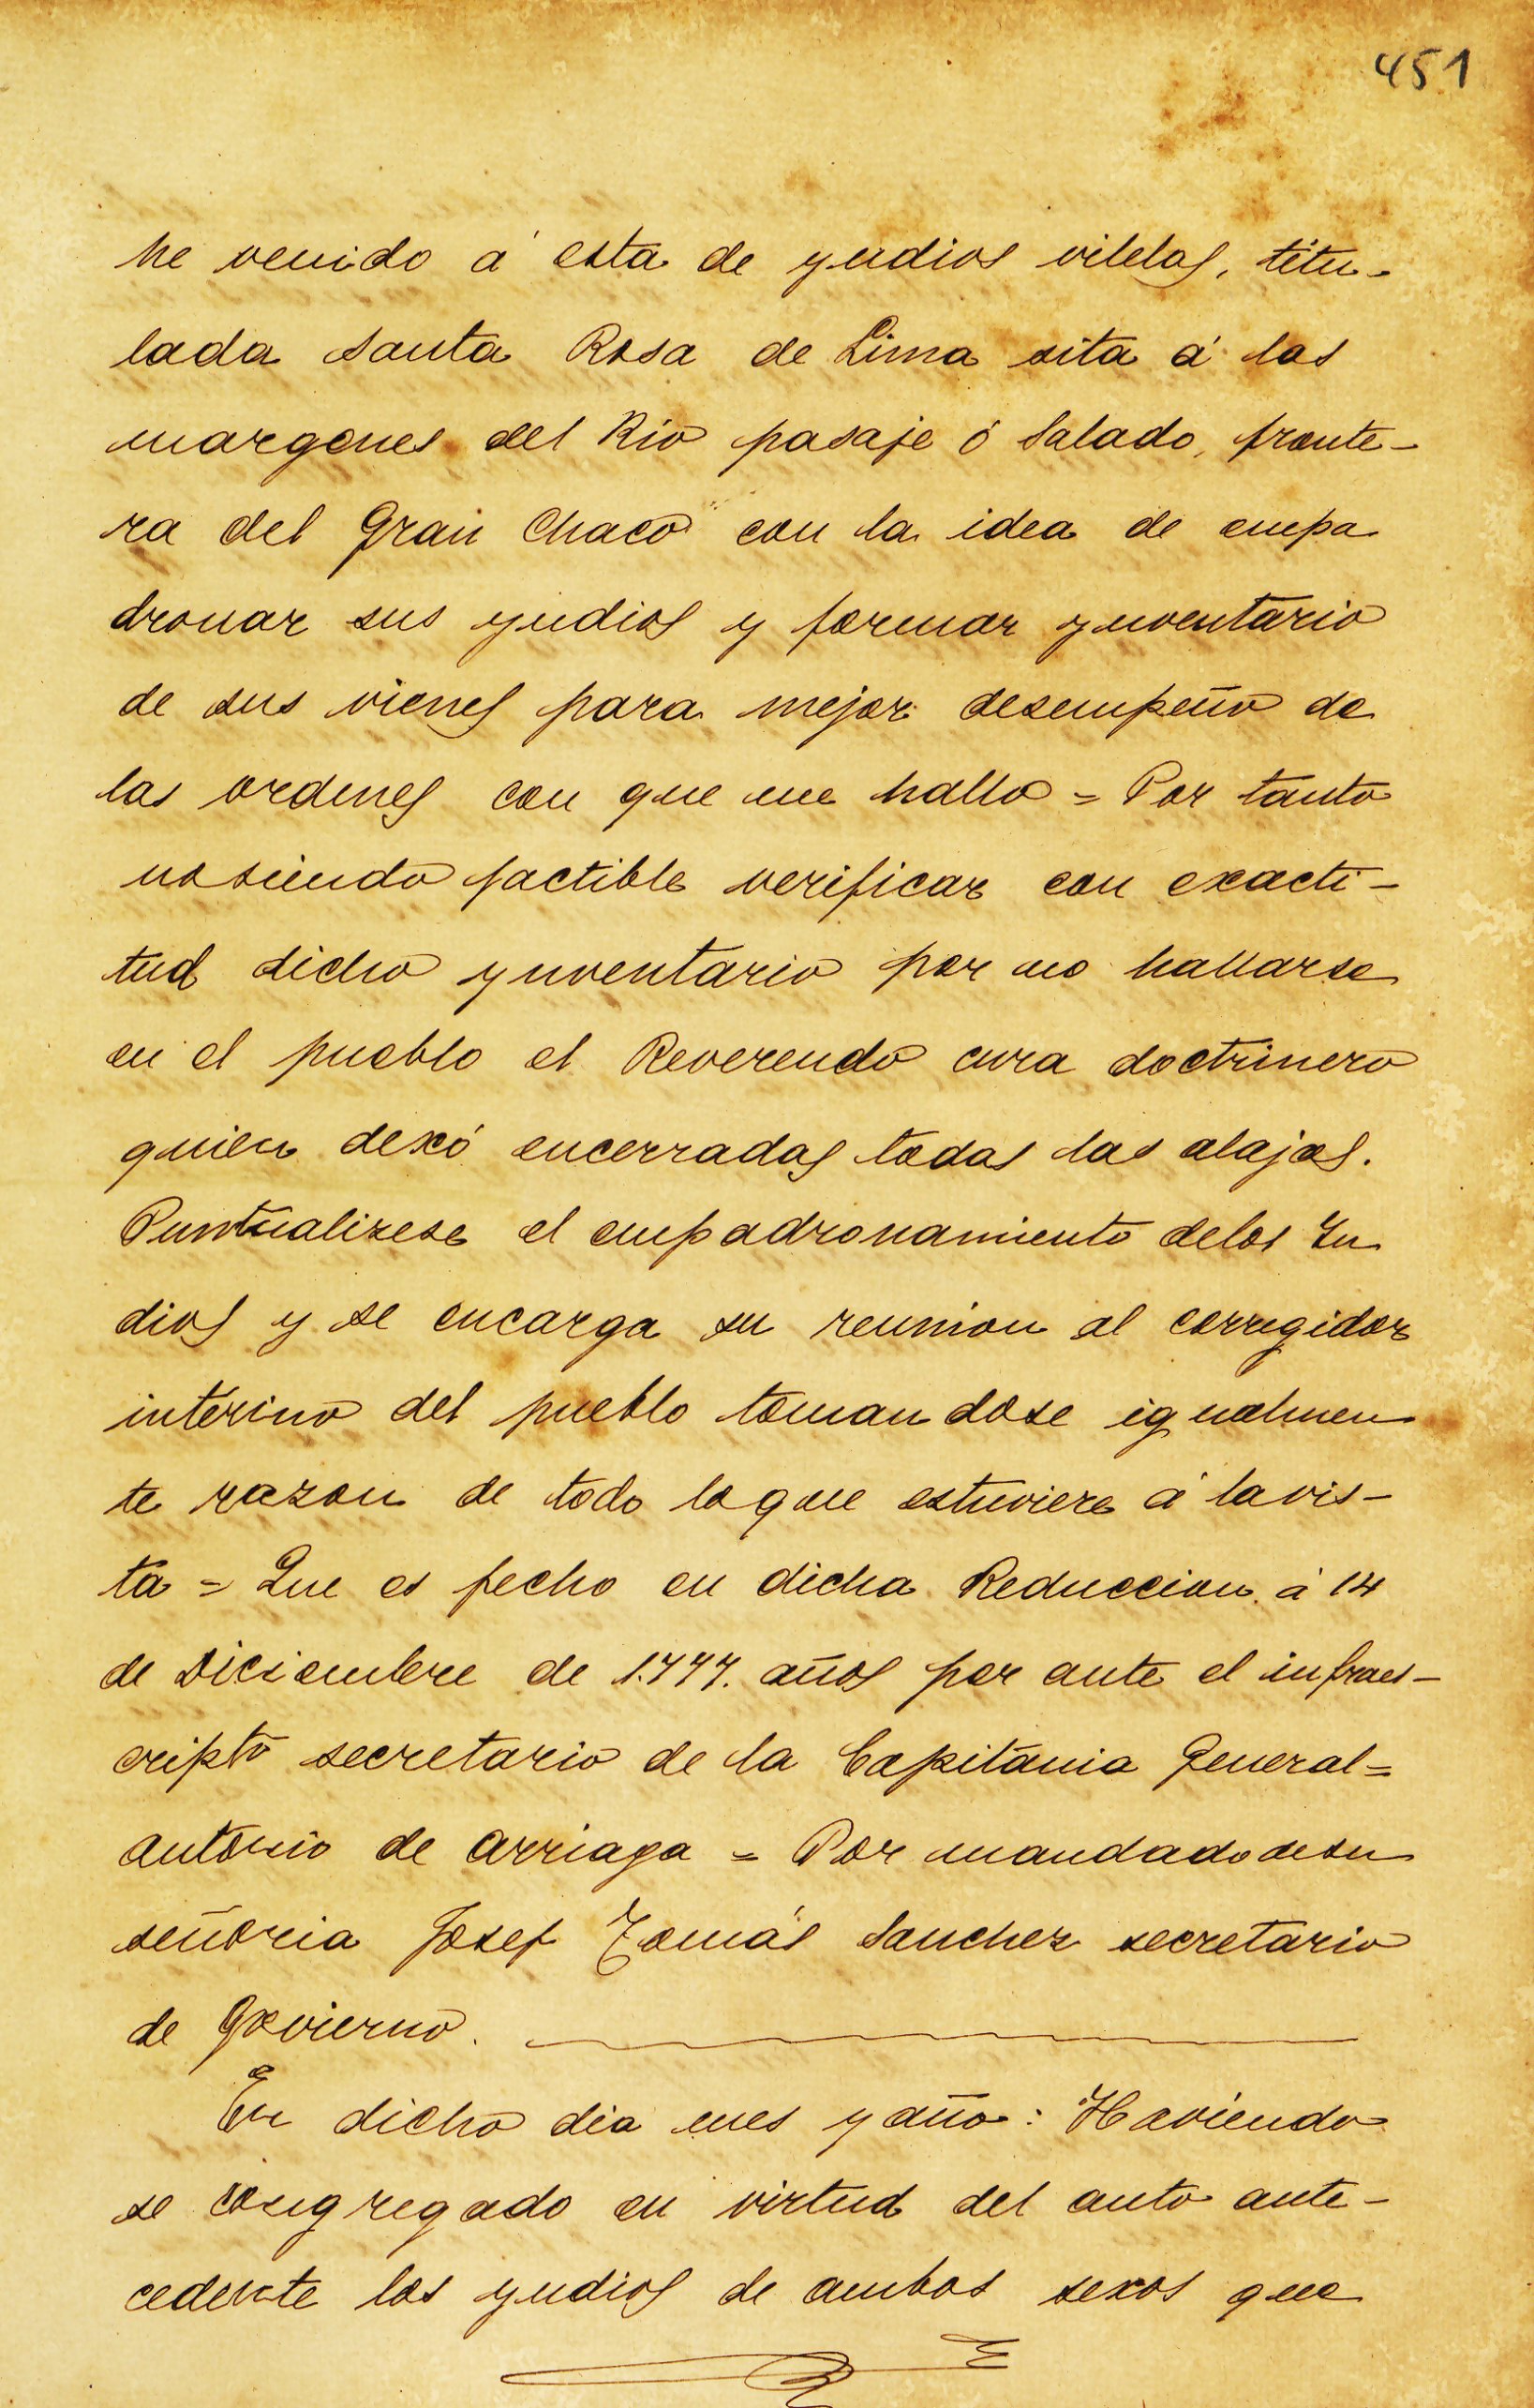 451
he venido á esta de yndios vilelas, titu-
lada Santa Rosa de Lima sita á los
margenes del Rio pasaje ó Salado, fronte-
ra del Gran Chaco con la idea de empa
dronar sus yndios y formar ynventario
de sus vienes para mejor desempeño de
las ordenes con que me hallo = Por tanto
no siendo factible verificar con exacti-
tud dicho ynventario por no hallarse
en el pueblo el Reverendo cura doctrinero
quien dexó encerradas todas las alajas.
Puntualizese el empadronamiento delos In
dios y se encarga su reunion al corregidor
interino del pueblo tomandose igualmen
te razon de todo loque estuviere á lavis-
ta = Que es fecho en dicha Reduccion á 14
de Diciembre de 1.777. años por ante el infraes-
cripto secretario de la Capitania General=
Antonio de Arriaga = Por mandado desu
señoria Josef Tomás Sanchez secretario
de Govierno.
En dicho dia mes y año: Haviendo
se congregado en virtud del auto ante-
cedente los yndios de ambos sexos que